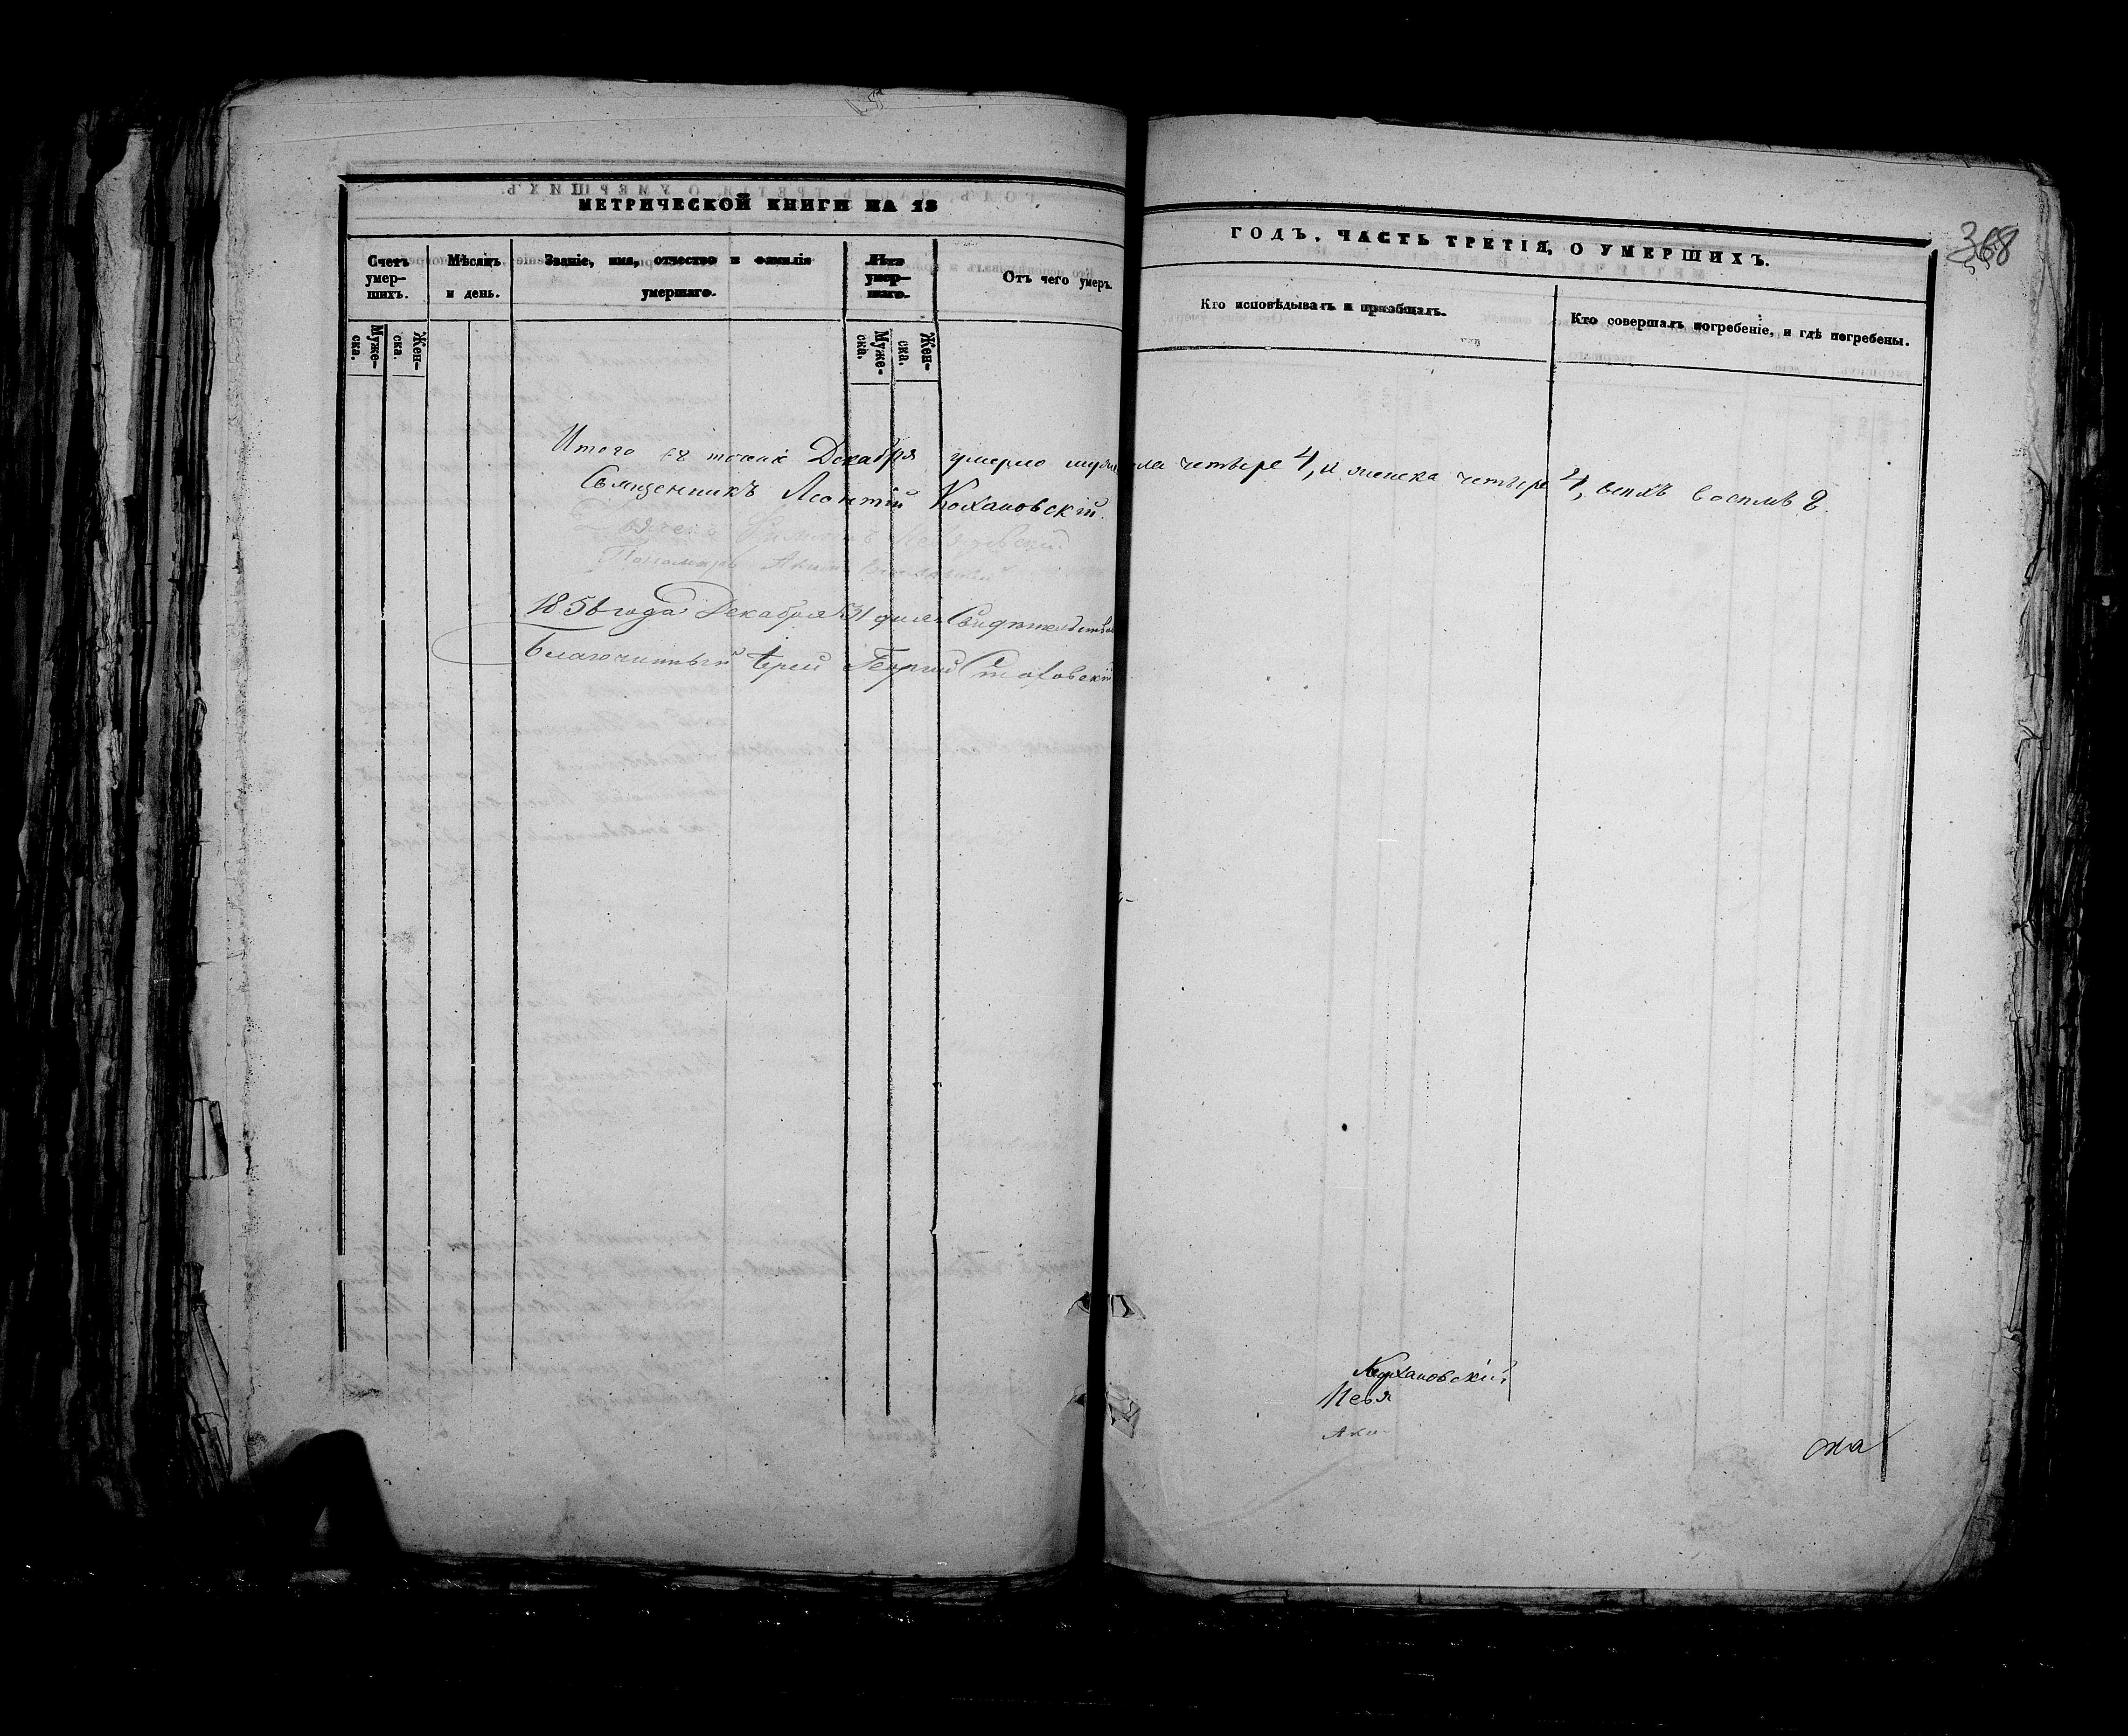 МЕТРИЧЕСКОЙ КНИГИ НА 18
Счетъ умер-шихъ.
Мѣсяцъ и день.
Званіе, имя, отчество и фамилія умершаго.
Лѣта умер-шаго.
Отъ чего умеръ.
Муже-ска.
Жен-ска.
Муже-ска.
Жен-ска.
ГОДЪ, ЧАСТЬ ТРЕТІЯ, О УМЕРШИХЪ.
368
Кто исповѣдывалъ и пріобщалъ.
Кто совершалъ погребеніе, и гдѣ погребены.
Итого Декабря умерло мужеска четыре 4, и женска четыре 4, всѣхъ восемь 8.
Священникъ Леонтій Кохановскій.
Пономарь
1856 года Декабря 31 дня Свидѣтельство
Благочинный Іерей Георгій
Кохановскій